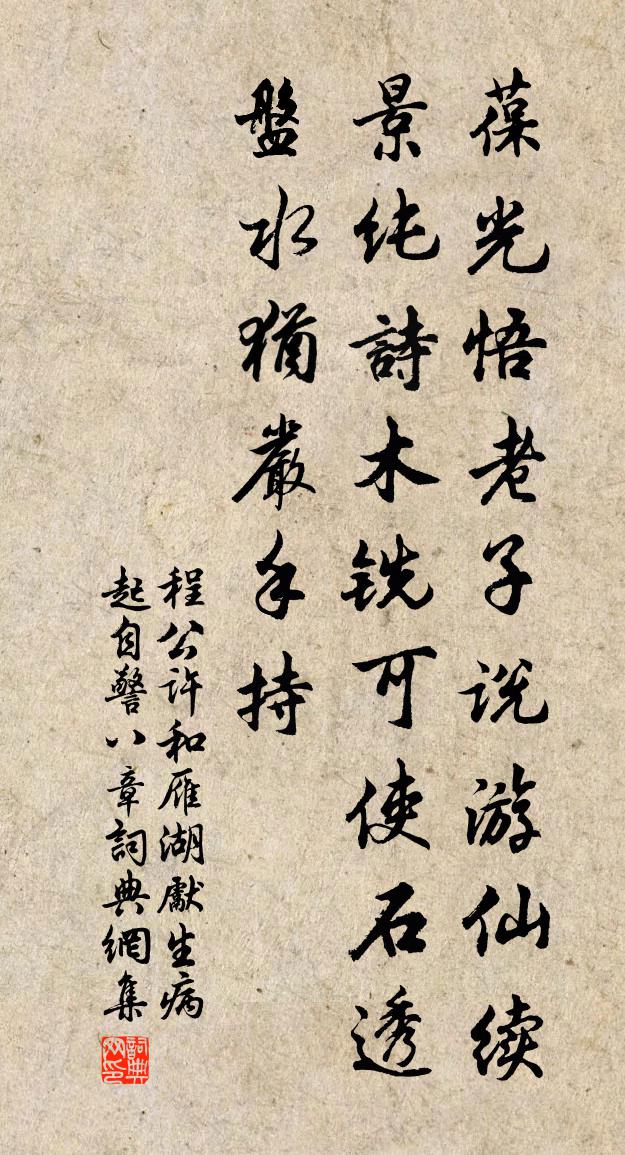 葆光悟老子说游仙续
景纯詩木铣可使石透
盤水猶嚴手持
程公许和雁湖獻生病
起自警八章詞典網集
詞典
网印